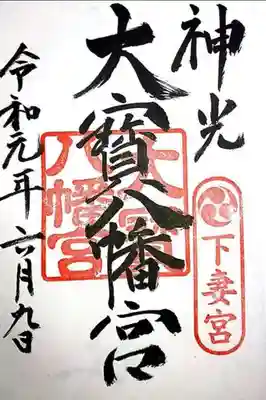 神光
下妻宮
大寳八幡宮
大寳八幡宮
令和元年六月九日